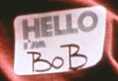 HELLO
I AM
BoB